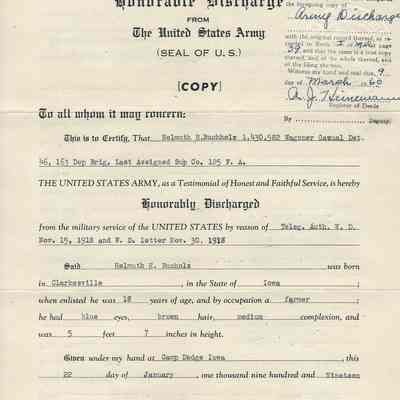 the foregoing copy of
Army Discharge
with the original record thereof, as re-
corded in Book 1 Misc
39, and that the same is a true copy
thereof, and of the whole thereof, and
of the filing thereon.
Witness my hand and seal due, 9
day of March 1960
A. J. Heinemann
Register of Deeds
By Deputy
Honorable Discharge
FROM
The United States Army
(SEAL OF U.S.)
[COPY]
To all whom it may concern:
This is to Certify, That Helmuth H.Buchholz 1,430,582 Wagoner Casual Det.
46, 163 Dep Brig. Last Assigned Sup Co. 125 F. A.
THE UNITED STATES ARMY, as a Testimonial of Honest and Faithful Service, is hereby
Honorably Discharged
from the military service of the UNITED STATES by reason of Teleg. Auth. W. D.
Nov. 15, 1918 and W. D. letter Nov. 30, 1918
Said Helmuth H. Buchholz was born
in Clarksville , in the State of Iowa ;
when enlisted he was 18 years of age, and by occupation a farmer ;
he had blue eyes, brown hair, medium complexion, and
was 5 feet 7 inches in height.
Given under my hand at Camp Dodge Iowa , this
22 day of January , one thousand nine hundred and Nineteen